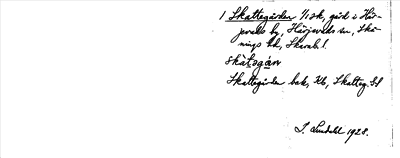 1 Skattegården 1/1 sk, gård i Här-
jevads by, Härjevads sn, Skå-
nings hd, Skarab. l.
skàtogán
Skattegården bak, Kb, Skatteg. Sd
J. Lindahl 1928.